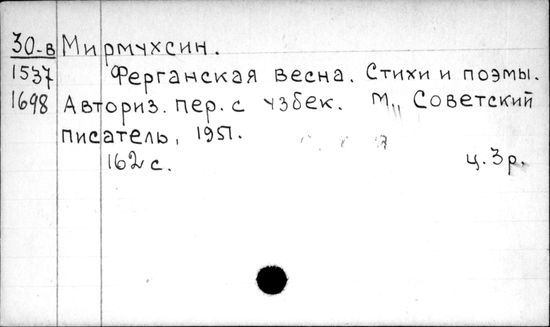 30-в Мирмухсин.
1537 Ферганская весна. Стихи и поэмы.
1698 Авториз. пер. с узбек. М., Советский
писатель, 1951.
162 с. ц. 3 р.